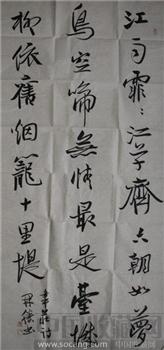 江雨霏〻江草齊六朝如夢
鳥空啼無情最是臺城
柳依舊烟籠十里堤
韋莊詩
www.socang.com